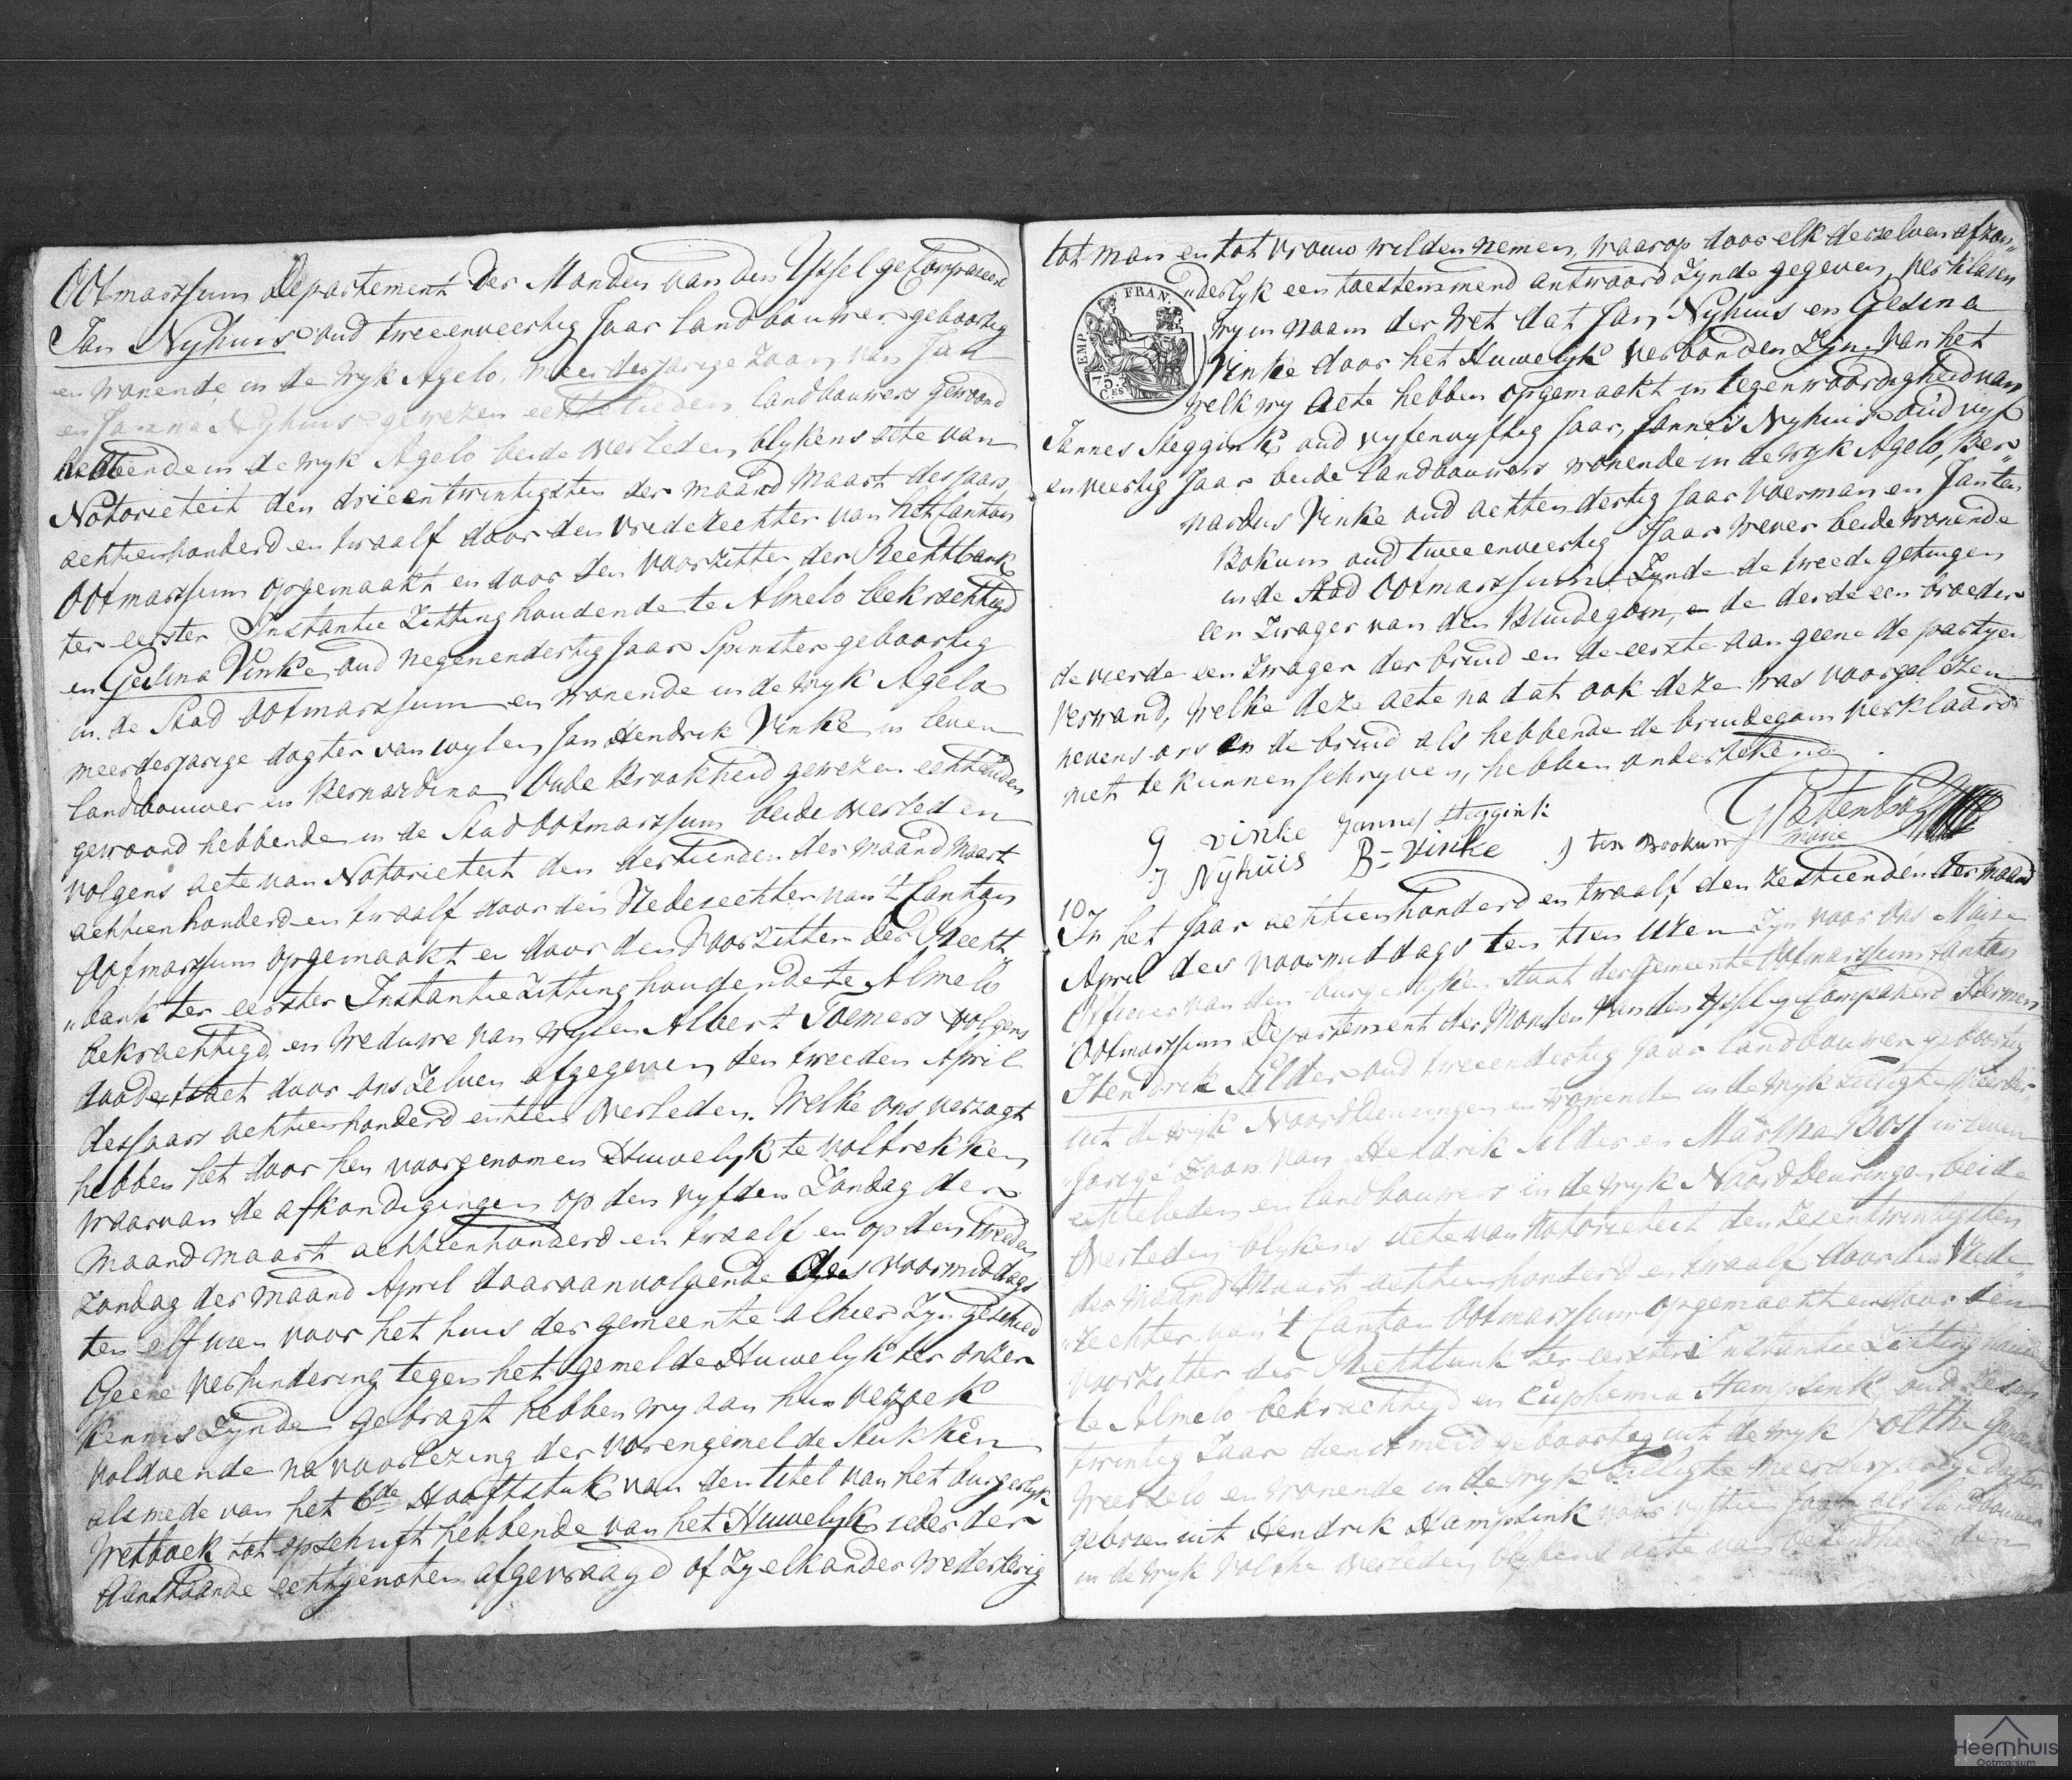 Ootmarssum Departement der Monden van den Yssel gecompareerd
Jan Nyhuis oud tweeenveertig Jaar landbouwer geboortig
en wonende in de wyk Agelo, meerderjarige zoon van Jan
en Janna Nyhuis gewezen echtelieden landbouwers gewoond
hebbende in de wyk Agelo beide overleden blykens acte van
Notorieteit den drieentwintigsten der maand Maart des Jaars
achtienhonderd en twaalf door den vrederechter van het Canton
Ootmarssum opgemaakt en door den voorzitter der Rechtbank
ter eerster Instantie Zitting houdende te Almelo bekrachtigd
en Gesina Vinke oud negenendertig Jaar Spinster geboortig
in de Stad Ootmarssum en wonende in de wyk Agelo
meerderjarige dogter van wylen Jan Hendrik Vinke in leven
landbouwer en Bernardina Oude Brookheid gewezen echtelieden
gewoond hebbende in de Stad Ootmarssum beide overleden
volgens acte van Notorieteit den dertienden der maand Maart
achtienhonderd en twaalf door den Vrederechter van 't Canton
Ootmarssum opgemaakt en door den Voorzitter der Recht„
„bank ter eerster Instantie Zitting houdende te Almelo
bekrachtigd, en weduwe van wylen Albert Toemers volgens
door ons zelven afgegeven den tweeden April
des Jaars achtienhonderd en tien overleden. Welke ons verzogt
hebben het door hen voorgenomen Huwelyk te voltrekken
waarvan de afkondigingen op den vyfden Zondag der
maand maart achtienhonderd en twaalf en op den tweeden
zondag der maand April daaraanvolgende des voormiddags
ten elf uren voor het huis der gemeente alhier zyn geschied
Geene verhindering tegen het gemelde Huwelyk ter onzer
kennis Zynde gebragt hebben wy aan hun verzoek
voldoende na voorlezing der vorengemelde Stukken
alsmede van het 6de Hooftstuk van den titel van het burgerlyk
Wetboek tot opschrift hebbende van het Huwelyk ieder der
Aanstaande echtgenoten afgevraagd of Zy elkander wederkerig
tot man en tot vrouw wilden nemen, waarop door elk derzelven afzon„
„derlyk een toestemmend antwoord Zynde gegeven, verklaren
wy in naam der Wet dat Jan Nyhuis en Gesina
Vinke door het Huwelyk verbonden Zyn. Van het
welk wy Acte hebben opgemaakt in tegenwoordigheid van
EMP. FRAN.
75
CES
Jannes Steggink oud vyfenvyftig Jaar, Jannes Nyhuis oud vyf
en veertig Jaar beide landbouwers wonende in de wyk Agelo, Ber„
nardus Vinke oud achtendertig Jaar Voerman en Jan ten
Bokum oud tweeenveertig Jaar wever beide wonende
in de Stad Ootmarssum Zynde de tweede getuigen
een zwager van den Bruidegom, en de derde een broeder
de vierde een zwager der bruid en de eerste aan geene de partyen
verwand, welke deze acte na dat ook deze was voorgelezen
nevens ons en de bruid als hebbende de bruidegom verklaard
niet te kunnen schryven, hebben ondertekend
G Vinke Jannes Steggink
J Nyhuis B= Vinke J ten Bookum
maire
10
In het Jaar achtienhonderd en twaalf, den zestienden der maand
April des voormiddags ten tien uren Zyn voor ons Maire
Officier van den burgerlyken staat der Gemeente Ootmarssum Canton
Ootmarssum Departement der Monden van den Yssel gecompareerd Hermen
Hendrik Silder oud tweeendertig Jaar landbouwer geboortig
uit de wyk Noorddeurningen en wonende in de wyk Tilligte Meerder
jarige Zoon van Hendrik Silder en Martha Bosf in leven
echtelieden en landbouwers in de wyk Noorddeuringen beide
Overleden blykens acte van Notorieteit den Zesentwintigsten
der Maand Maart achtienhonderd en twaalf door den Vrede„
„rechter van 't Canton Ootmarssum opgemaakt en door den
voorzitter der Rechtbank ter eerster Instantie Zitting houdende
te Almelo bekrachtigd en Euphemia Hampsink oud zesen
twintig Jaar dienstmeid geboortig uit de wyk Volthe Gemeente
Weerzelo en wonende in de wyk Tilligte meerderjarige dogter
geboren uit Hendrik Hampsink voor vyftien Jaar als landbouwer
in de wyk Volthe overleden blykens acte van bekendheid den
Heemhuis
Ootmarsum